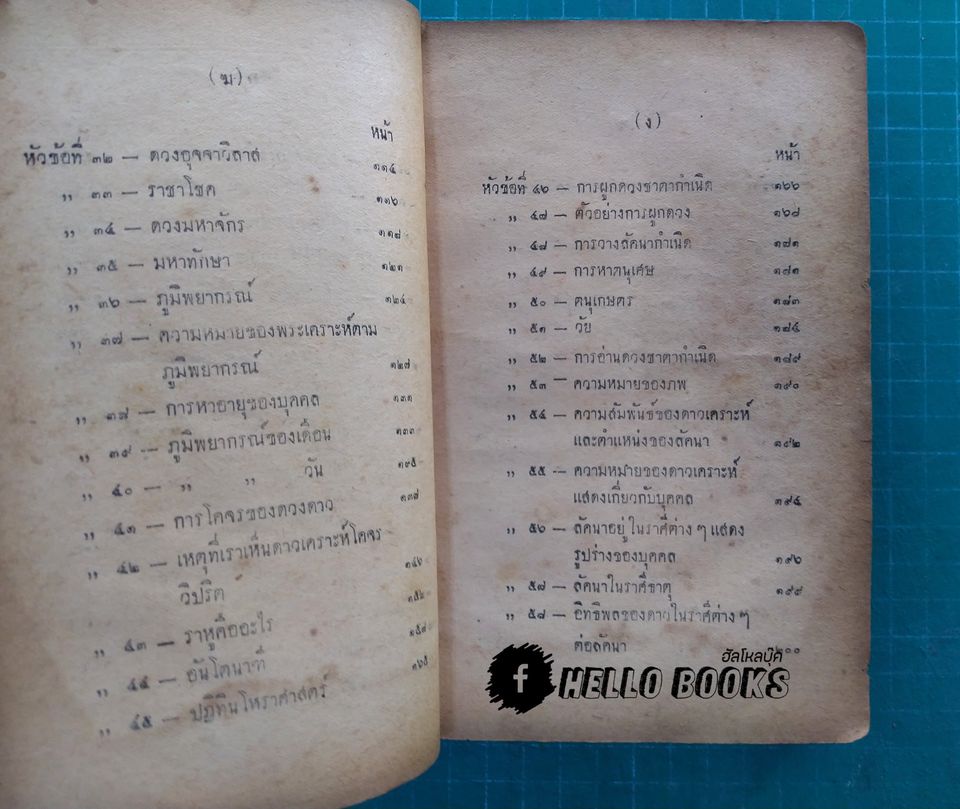 (ฆ)
หน้า
หัวข้อที่ ๓๒ — ดวงอุจจาวิลาส ๑๑๔
,, ๓๓ — ราชาโชค ๑๑๖
,, ๓๔ — ดวงมหาจักร ๑๑๘
,, ๓๕ — มหาทักษา ๑๒๑
,, ๓๖ — ภูมิพยากรณ์ ๑๒๔
,, ๓๗ — ความหมายของพระเคราะห์ตาม
ภูมิพยากรณ์ ๑๒๗
,, ๓๘ — การหาอายุของบุคคล ๑๓๑
,, ๓๙ — ภูมิพยากรณ์ของเดือน ๑๓๓
,, ๔๐ — ,, ,, วัน ๑๙๕
,, ๔๑ — การโคจรของดวงดาว ๑๓๗
,, ๔๒ — เหตุที่เราเห็นดาวเคราะห์โคจร
วิปริต ๑๔๖
,, ๔๓ — ราหูคืออะไร ๑๕๒
,, ๔๔ — อันโตนาที ๑๕๙
,, ๔๕ — ปฏิทินโหราศาสตร์ ๑๖๕
(ง)
หน้า
หัวข้อที่ ๔๖ — การผูกดวงชาตากำเนิด ๑๖๖
,, ๔๗ — ตัวอย่างการผูกดวง ๑๖๘
,, ๔๘ — การวางลัคนากำเนิด ๑๗๑
,, ๔๙ — การหาตนุเศษ ๑๘๑
,, ๕๐ — ตนุเกษตร ๑๘๓
,, ๕๑ — วัย ๑๘๔
,, ๕๒ — การอ่านดวงชาตากำเนิด ๑๘๙
,, ๕๓ — ความหมายของภพ ๑๙๐
,, ๕๔ — ความสัมพันธ์ของดาวเคราะห์
และตำแหน่งของลัคนา ๑๙๒
,, ๕๕ — ความหมายของดาวเคราะห์
แสดงเกี่ยวกับบุคคล ๑๙๔
,, ๕๖ — ลัคนาอยู่ในราศีต่าง ๆ แสดง
รูปร่างของบุคคล ๑๙๖
,, ๕๗ — ลัคนาในราศีธาตุ ๑๙๙
,, ๕๘ — อิทธิพลของดาวในราศีต่าง ๆ
ต่อลัคนา ๒๐๐
ฮัลโหลบุ๊ค
f HELLO BOOKS